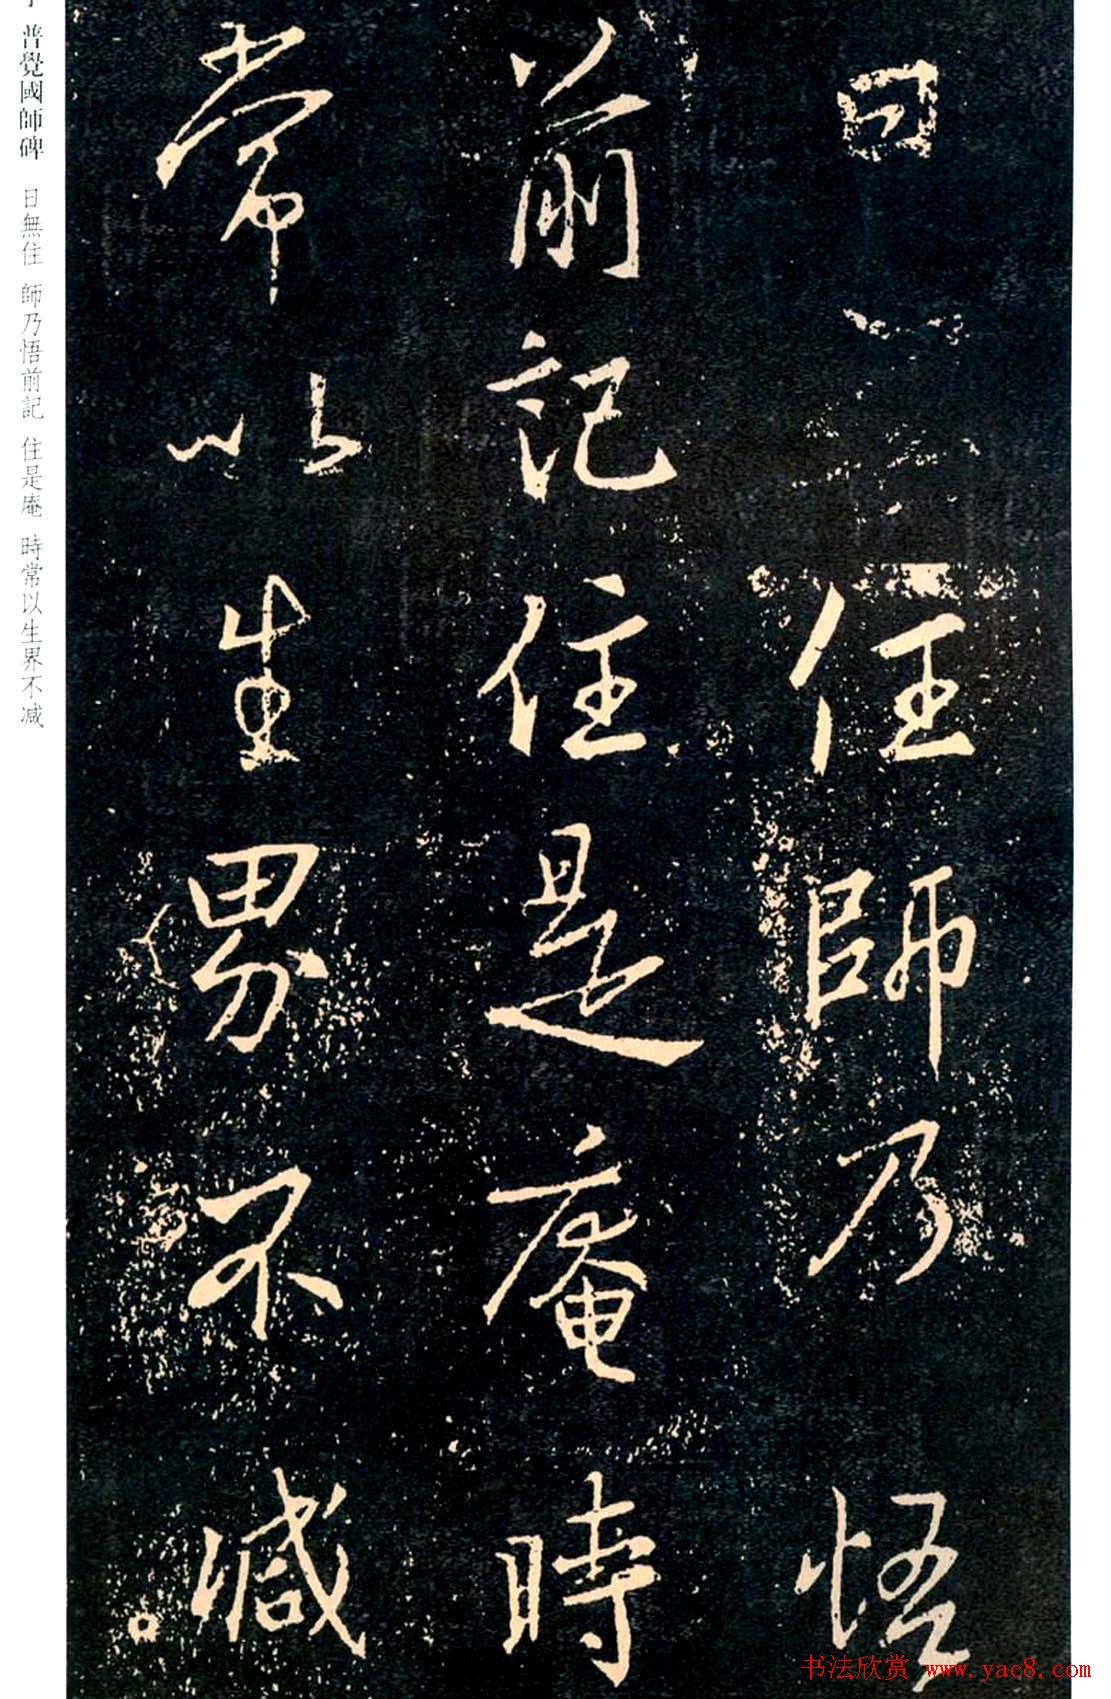 日住師乃悟
前記住是庵時
常以生界不减
普覺國師碑 日無住 師乃悟前記 住是庵 時常以生界不减
书法欣赏 www.yac8.com